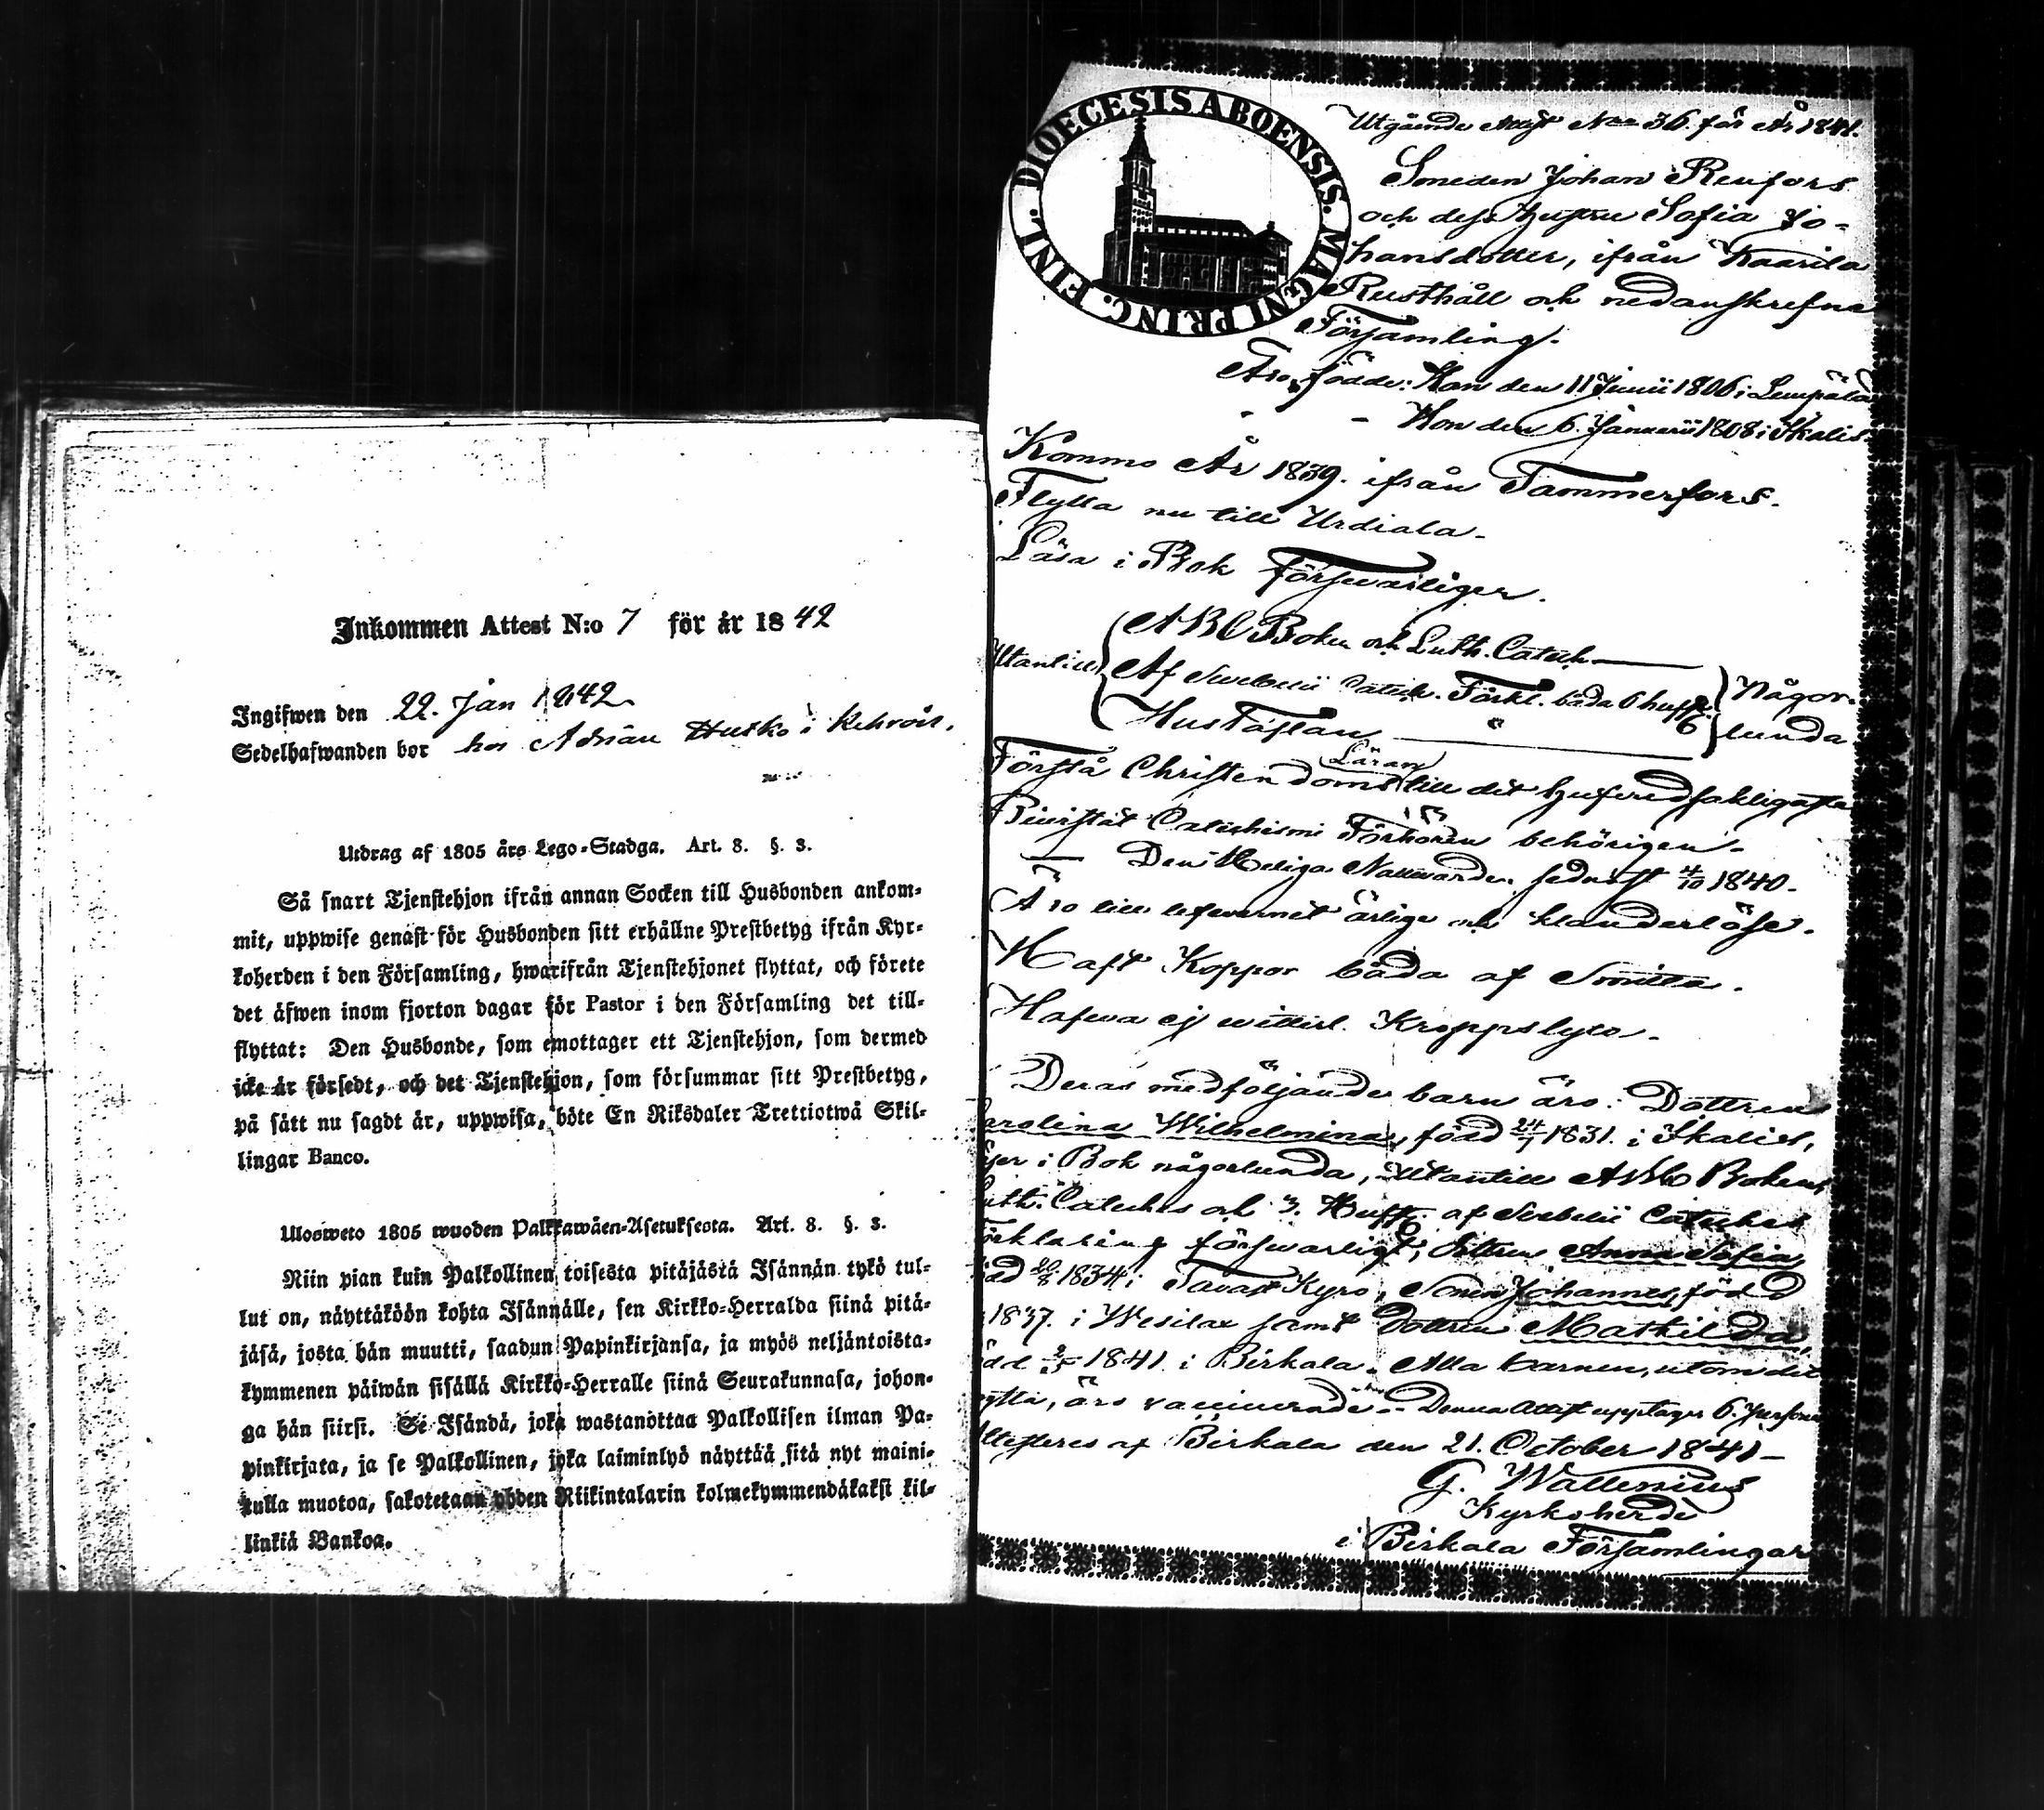 Inkommen Attest N:o 7 för år 1842
Ingifwen den 22. Jan 1842
Sedelhafwanden bor hos Adrian Husko i
Utdrag af 1805 års Lego-Stadga. Art. 8. §. 3.
Så snart Tjenstehjon ifrån annan Socken till Husbonden ankom-
mit, uppwise genast för Husbonden sitt erhållne Prestbetyg ifrån Kyr-
koherden i den Församling, hwarifrån Tjenstehjonet flyttat, och förete
det äfwen inom fjorton dagar för Pastor i den Församling det till-
flyttat: Den Husbonde, som emottager ett Tjenstehjon, som dermed
icke är försedt, och det Tjenstehjon, som försummar sitt Prestbetyg,
på sätt nu sagdt är, uppwisa, böte En Riksdaler Trettiotwå Skil-
lingar Banco.
Ulosweto 1805 wuoden Palkkawäen-Asetuksesta. Art. 8. §. 3.
Niin pian kuin Palkollinen toisesta pitäjästä Isännän tykö tul-
lut on, näyttäköön kohta Isännälle, sen Kirkko-Herralda siinä pitä-
jäsä, josta hän muutti, saadun Papinkirjansa, ja myös neljäntoista-
kymmenen päiwän sisällä Kirkko-Herralle siinä Seurakunnasa, johon-
ga hän siirsi. Se Isändä, joka wastanottaa Palkollisen ilman Pa-
pinkirjata, ja se Palkollinen, joka laiminlyö näyttää sitä nyt maini-
tulla muotoa, sakotetaan yhden Riikintalarin kolmekymmendäkaksi kil-
linkiä Bankoa.
DIOECESIS ABOENSIS. MAGNI PRINC. FINL.
Utgående Attest No 36. för År 1841.
Smeden Johan Renfors
och dess hustru Sofia Jo-
hansdotter, ifrån Kaarila
Rusthåll och nedanskrefne
Församling.
Äro födde: Han den 11 Junii 1806 i Lempälä
Hon den 6. Januarii 1808 i Ikalis.
Kommo År 1839. ifrån Tammerfors.
Flytta nu till Urdiala.
Läsa i Bok försvarligen.
Utantill ABC Boken och Luth. Catech.
Af Svebelii Catech. Förkl. båda 6 Någor-
Hus Taflan lunda
Första Christendoms Läran till det hufvudsakligaste
Bivistat Catechismi Förhören behörigen.
Den Heliga Nattvarden sednast 4/10 1840.
Äro till lefvernet ärliga och klanderlöse.
Haft Koppor båda af Smitta.
Hafva ej vitterl. Kroppslyte.
Deras medföljande barn äro: Dottren
arolina Wilhelmina, född 24/1 1831. i Ikalis,
i Bok någorlunda, Utantill ABC Boken,
uth. Catechis och 3. af Svebelii Catechis
örklaring försvarligt; Dottren Anna Sofia,
1834 i Tavast Kyro, Sonen Johannes, född
1837. i Wesilax samt Dottren Mathilda,
1841. i Birkala. Alla barnen, utom det
äro vaccinerade. Denna Attest upptager 6. Personer
ttesteres af Birkala den 21. October 1841
G. Wallenius
Kyrkoherde
i Birkala Församlingar